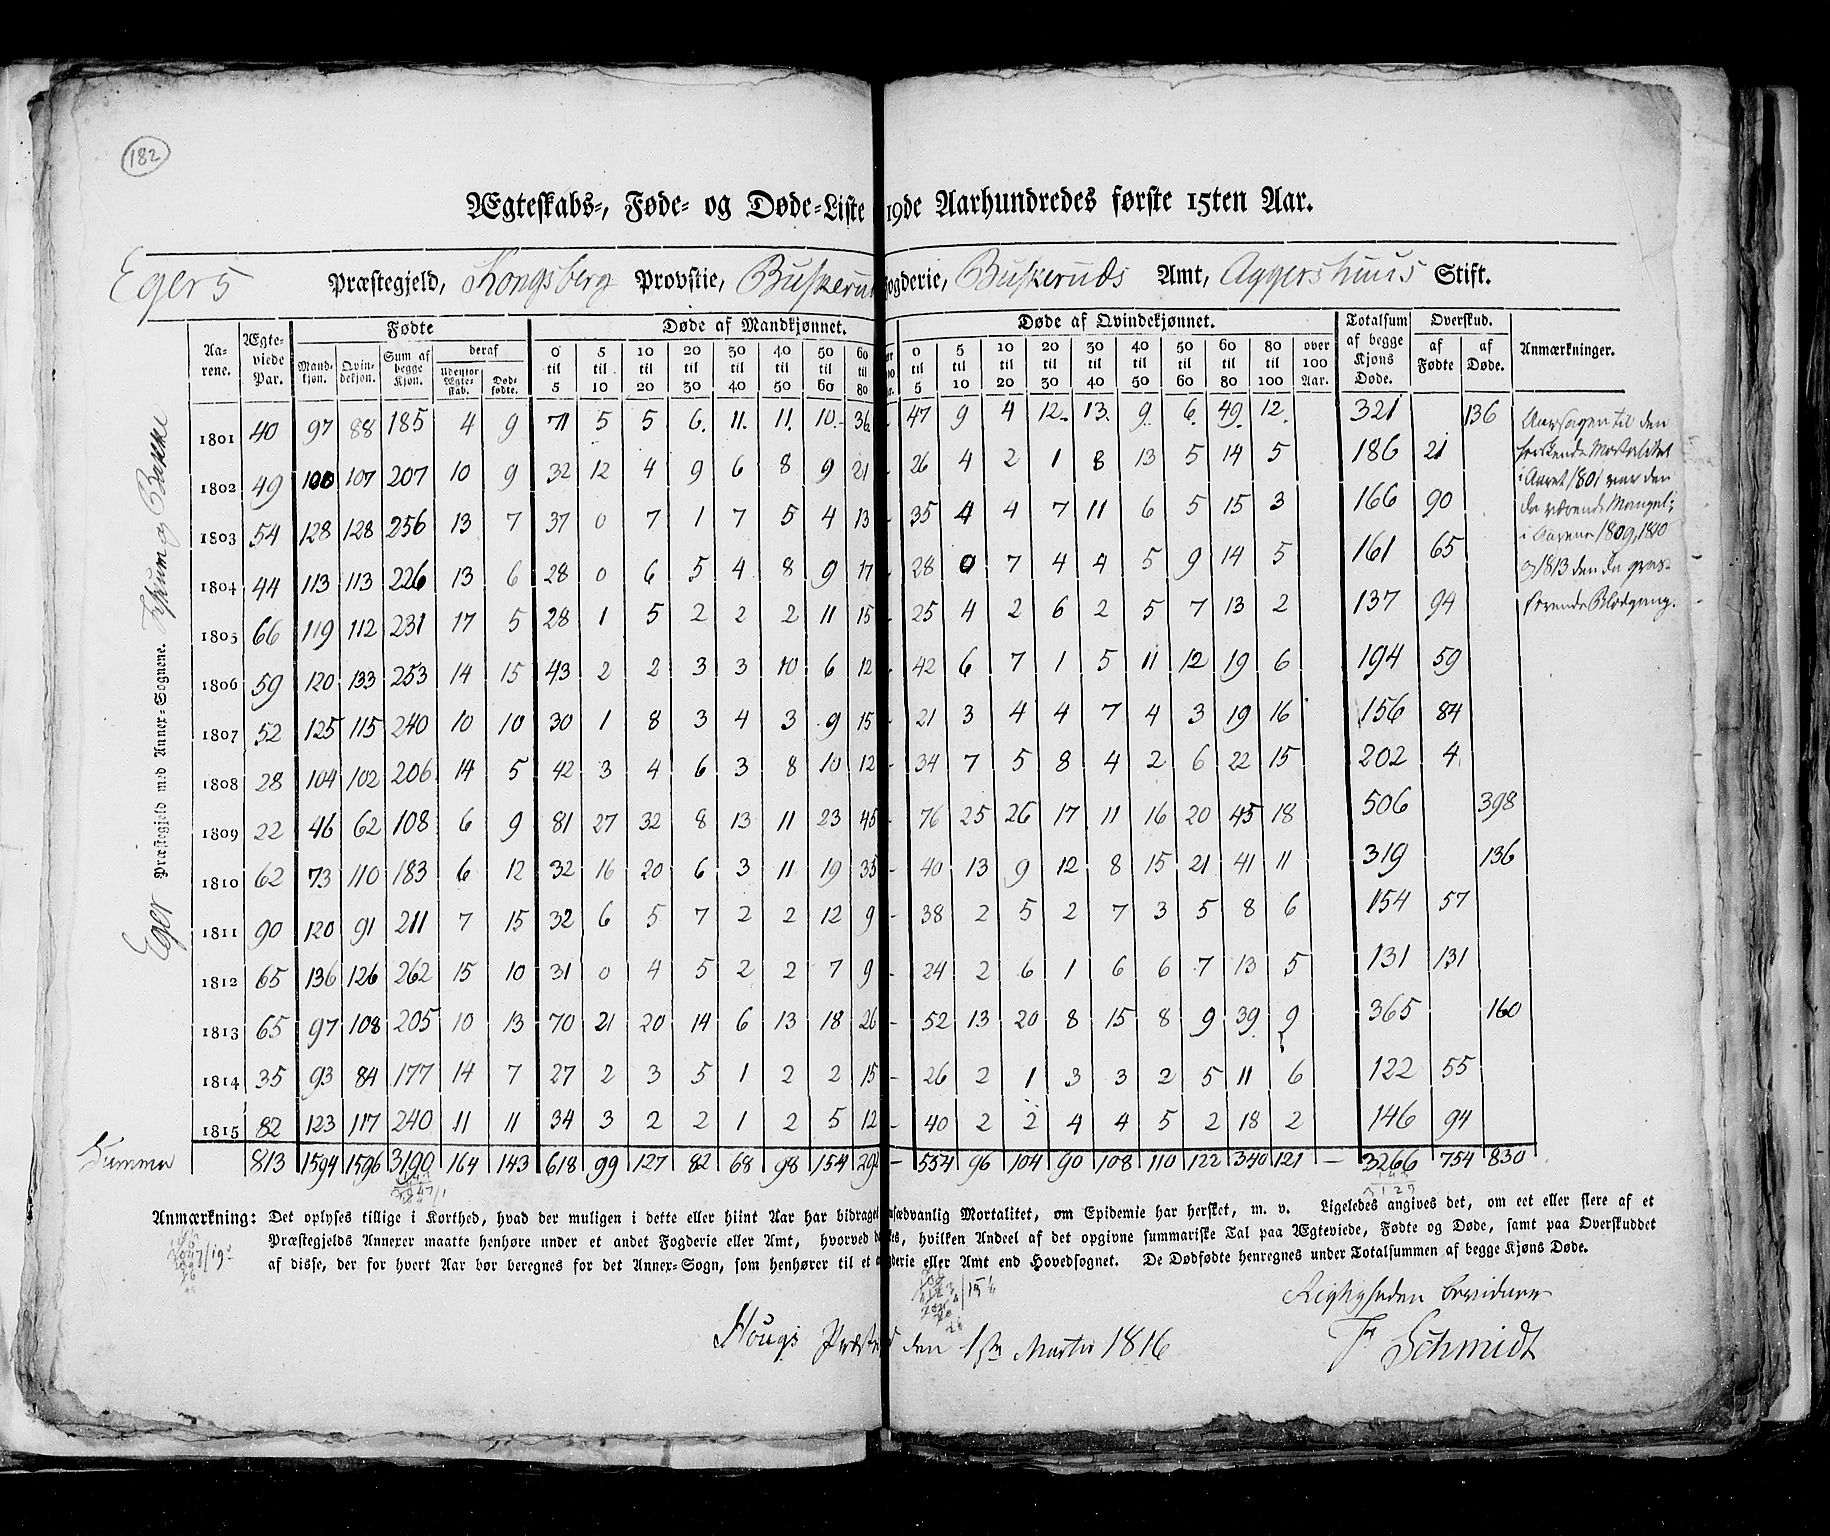 182
Ægteskabs-, Føde- og Døde-Liste 19de Aarhundredes første 15ten Aar.
Egers Præstegjeld, Kongsberg Provstie, Buskerud Fogderie, Buskeruds Amt, Aggershuus Stift.
Eger Præstegjeld med Annex-Sognene. Fiskum og Bakke
Aarene. Ægteviede Par. Fødte Døde af Mandkjønnet. Døde af Qvindekjønnet. Totalsum af begge Kjøns Døde. Overskud. Anmærkninger.
Mandkjøn. Qvindekjøn. Sum af begge Kjøn. deraf udenfor Ægteskab. Dødfødte. 0 til 5 5 til 10 10 til 20 20 til 30 30 til 40 40 til 50 50 til 60 60 til 80 0 til 5 5 til 10 10 til 20 20 til 30 30 til 40 40 til 50 50 til 60 60 til 80 80 til 100 over 100 Aar. af Fødte af Døde.
1801 40 97 88 185 4 9 71 5 5 6. 11. 11. 10. 36 - 47 9 4 12. 13. 9. 6. 49. 12. 321 136
1802 49 100 107 207 10 9 32 12 4 9 6 8 9 21 - 26 4 2 1 8 13 5 14 5 186 21
1803 54 128 128 256 13 7 37 0 7 1 7 5 4 13 - 35 4 4 7 11 6 5 15 3 166 90
1804 44 113 113 226 13 6 28 0 6 5 4 8 9 17 - 28 0 7 4 4 5 9 14 5 161 65
1805 66 119 112 231 17 5 28 1 5 2 2 2 11 15 - 25 4 2 6 2 5 7 13 2 137 94
1806 59 120 133 253 14 15 43 2 2 3 3 10 6 12 - 42 6 7 1 5 11 12 19 6 194 59
1807 52 125 115 240 10 10 30 1 8 3 4 3 9 15 - 21 3 4 4 7 4 3 19 16 156 84
1808 28 104 102 206 14 5 42 3 4 6 3 8 10 12 - 34 7 5 8 4 2 6 22 15 202 4
1809 22 46 62 108 6 9 81 27 32 8 13 11 23 45 - 76 25 26 17 11 16 20 45 18 506 398
1810 62 73 110 183 6 12 32 16 20 6 3 11 19 35 - 40 13 9 12 8 15 21 41 11 319 136
1811 90 120 91 211 7 15 32 6 5 7 2 2 12 9 - 38 2 5 2 7 3 5 8 6 154 57
1812 65 136 126 262 15 10 31 0 4 5 2 2 7 9 - 24 2 6 1 6 6 7 13 5 131 131
1813 65 97 108 205 10 13 70 21 20 14 6 13 18 26 - 52 13 20 8 15 8 9 39 9 365 160
1814 35 93 84 177 14 7 27 2 3 5 1 2 2 15 - 26 2 1 3 3 2 5 11 6 122 55
1815 82 123 117 240 11 11 34 3 2 2 1 2 5 12 - 40 2 2 4 4 5 2 18 2 146 94
Summa 813 1594 1596 3190 164 143 618 99 127 82 68 98 154 292 - 554 96 104 90 108 110 122 340 121 - 3266 754 830
Aarsagen til den
herskende Mortalitet
i Aaret 1801 var den
da værende Mangel;
i Aarene 1809, 1810
og 1813 den da gras-
serende Blodgang.
Anmærkning: Det oplyses tillige i Korthed, hvad der muligen i dette eller hiint Aar har bidraget usædvanlig Mortalitet, om Epidemie har hersket, m. v. Ligeledes angives det, om eet eller flere af et
Præstegjelds Annexer maatte henhøre under et andet Fogderie eller Amt, hvorved hvilken Andeel af det opgivne summariske Tal paa Ægteviede, Fødte og Døde, samt paa Overskuddet
af disse, der for hvert Aar bør beregnes for det Annex-Sogn, som henhører til et eller Amt end Hovedsognet. De Dødfødte henregnes under Totalsummen af begge Kjøns Døde.
Rigtigheden bevidner
Hougs Præste den 1ste Martii 1816
Fr Schmidt